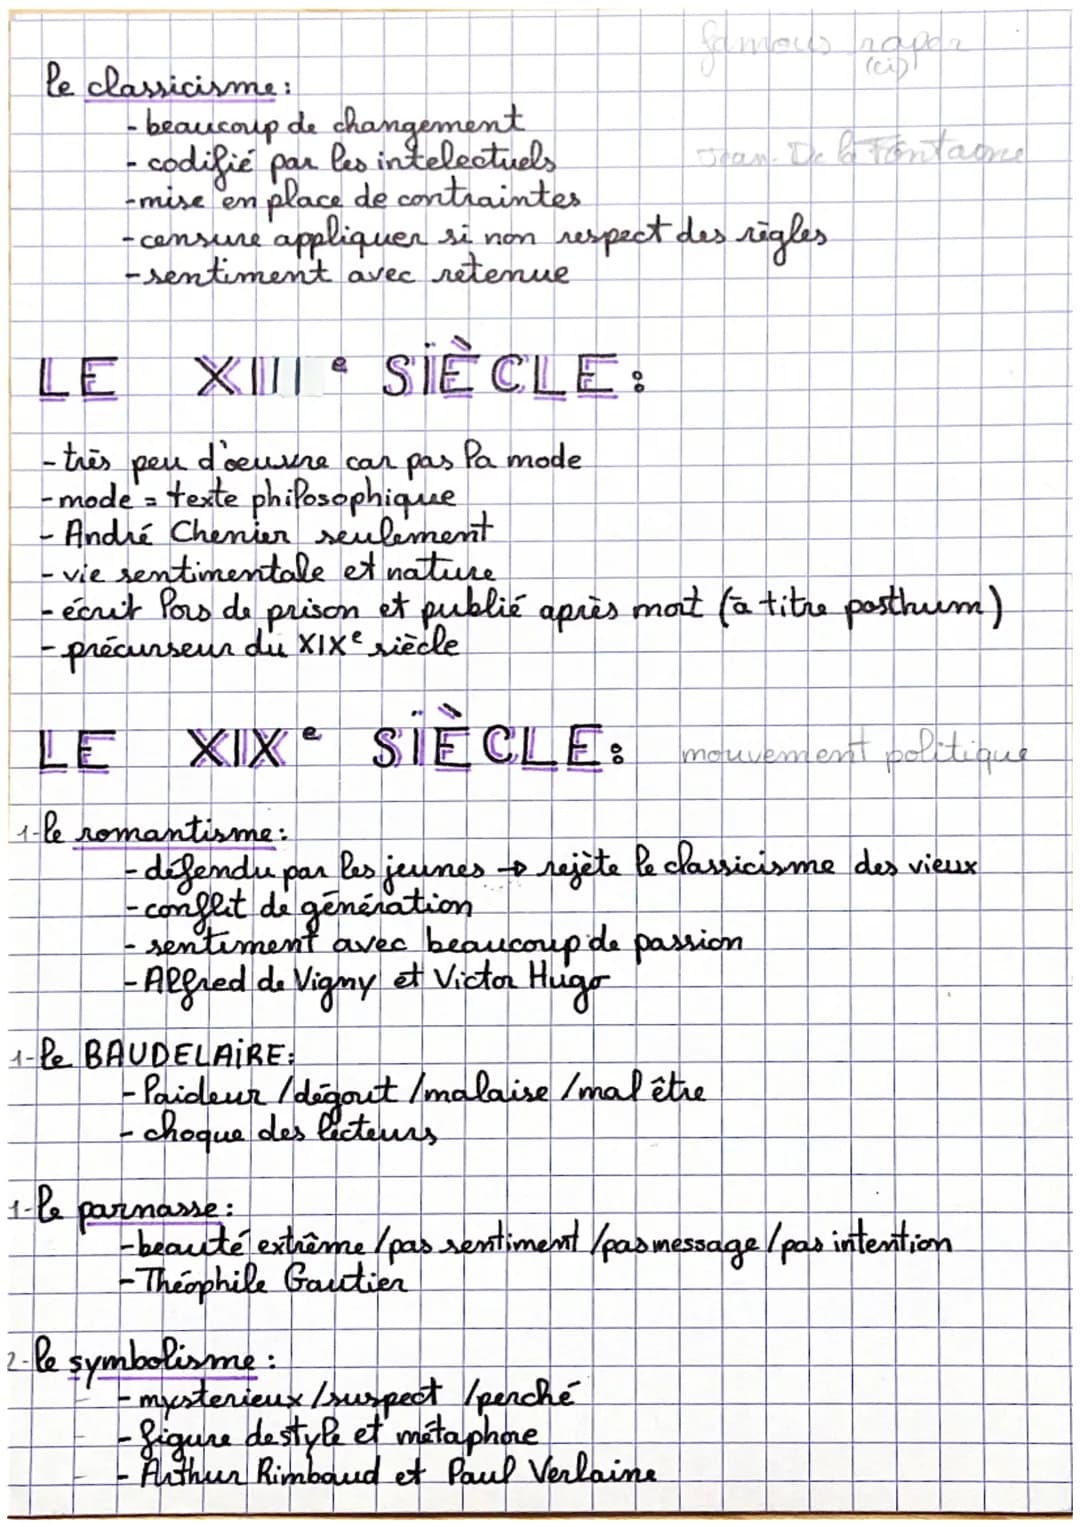 famous raper
(ci)
le classicisme:
- beaucoup de changement
- codifié par les intelectuels
Jean De la Fontaine
- mise en place de contraintes
- censure appliquer si non respect des règles
- sentiment avec retenue
LE XIIIe SIÈCLE:
- très peu d'oeuvre car pas la mode
- mode = texte philosophique
- André Chenier seulement
- vie sentimentale et nature
- écrit lors de prison et publié après mort (à titre posthum)
- précurseur du XIXe siècle
LE XIXe SIÈCLE: mouvement politique
1-le romantisme:
- défendu par les jeunes → rejète le classicisme des vieux
- conflit de génération
- sentiment avec beaucoup de passion
- Alfred de Vigny et Victor Hugo
1-le BAUDELAIRE:
- laideur /dégout /malaise /mal être
- choque des lecteurs
1-le parnasse:
- beauté extrême /pas sentiment /pas message /pas intention
- Théophile Gautier
2-le symbolisme:
- mysterieux /suspect /perché
- figure de style et métaphore
- Arthur Rimbaud et Paul Verlaine